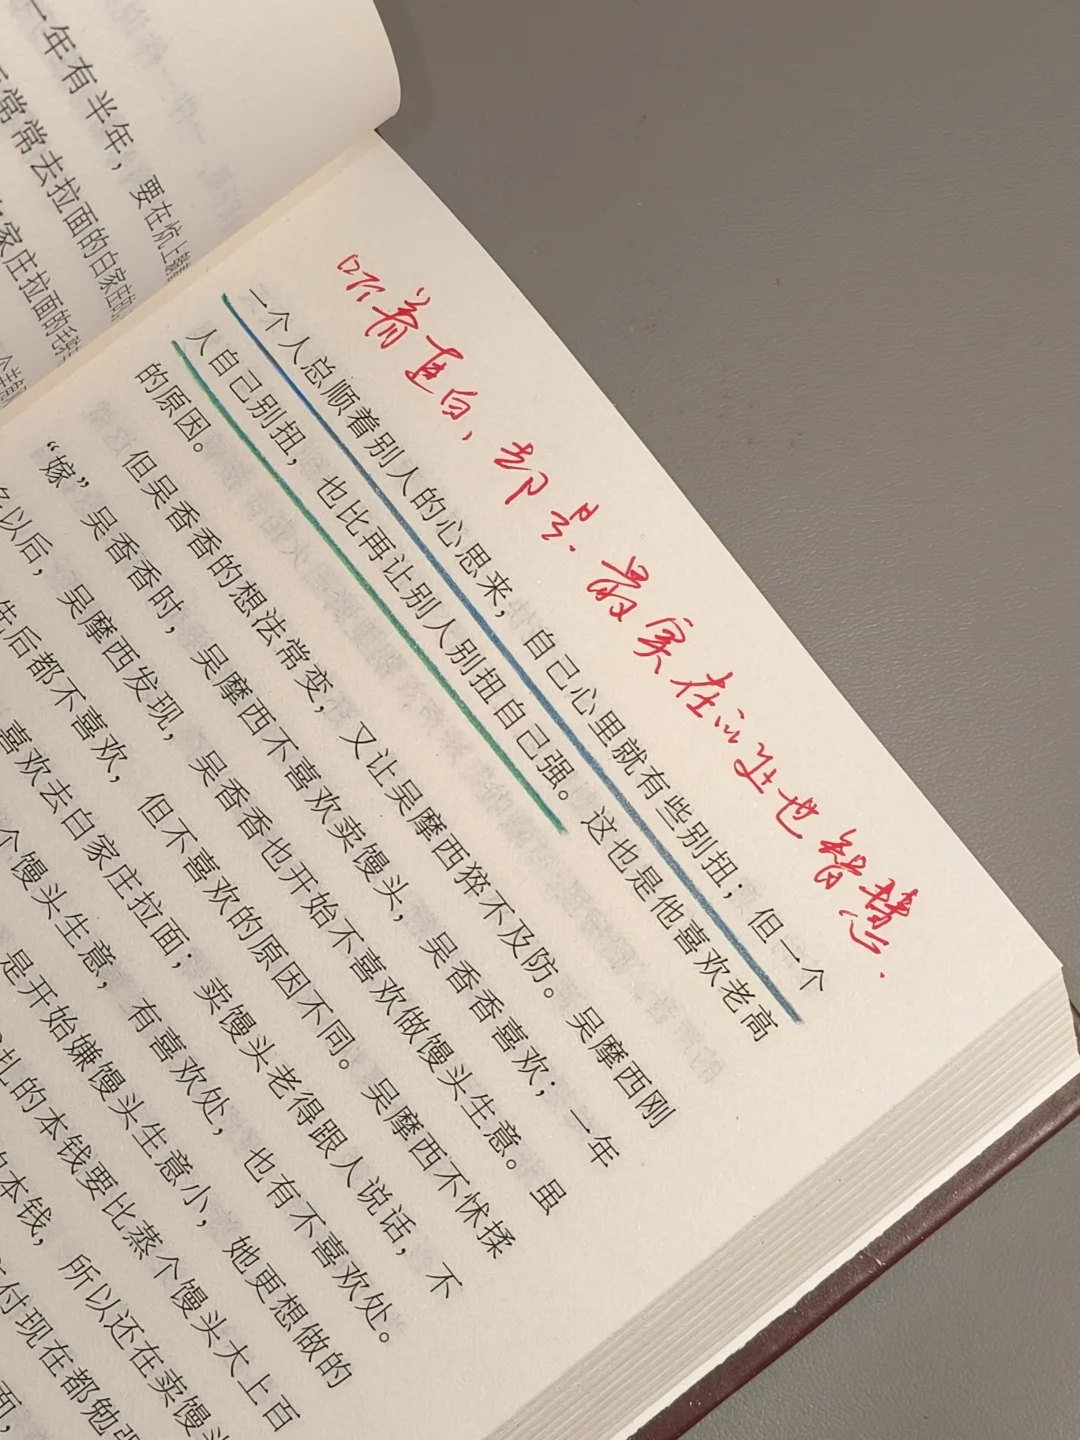 一年有半年，要在炕上
常常去拉面的白家庄的
家庄拉面的
听着直白，却是最实在的处世智慧.
一个人总顺着别人的心思来，自己心里就有些别扭；但一个
人自己别扭，也比再让别人别扭自己强。这也是他喜欢老高
的原因。
但吴香香的想法常变，又让吴摩西猝不及防。吴摩西刚
“嫁”吴香香时，吴摩西不喜欢卖馒头，吴香香喜欢；一年
以后，吴摩西发现，吴香香也开始不喜欢做馒头生意。虽
先后都不喜欢，但不喜欢的原因不同。吴摩西不怵揉
喜欢去白家庄拉面；卖馒头老得跟人说话，不
个馒头生意，有喜欢处，也有不喜欢处。
是开始嫌馒头生意小，她更想做的
扎的本钱要比蒸个馒头大上百
本钱，所以还在卖馒头
付现在都勉强